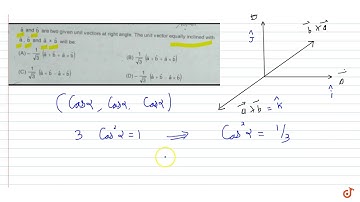 a and b are two given unit vectors at right angle. The unit vector equally inclined with
a, b and a × b will be
(A) -1/√3 (a + b + a × b)
(B) 1/√3 (a + b + a × b)
(C) 1/√3 (a + b - a × b)
(D) -1/√3 (a + b - a × b)
b
ĵ
b × a
a
î
a × b = k̂
(Cosα, Cosα, Cosα)
3 Cos²α = 1 ⟹ Cos²α = 1/3